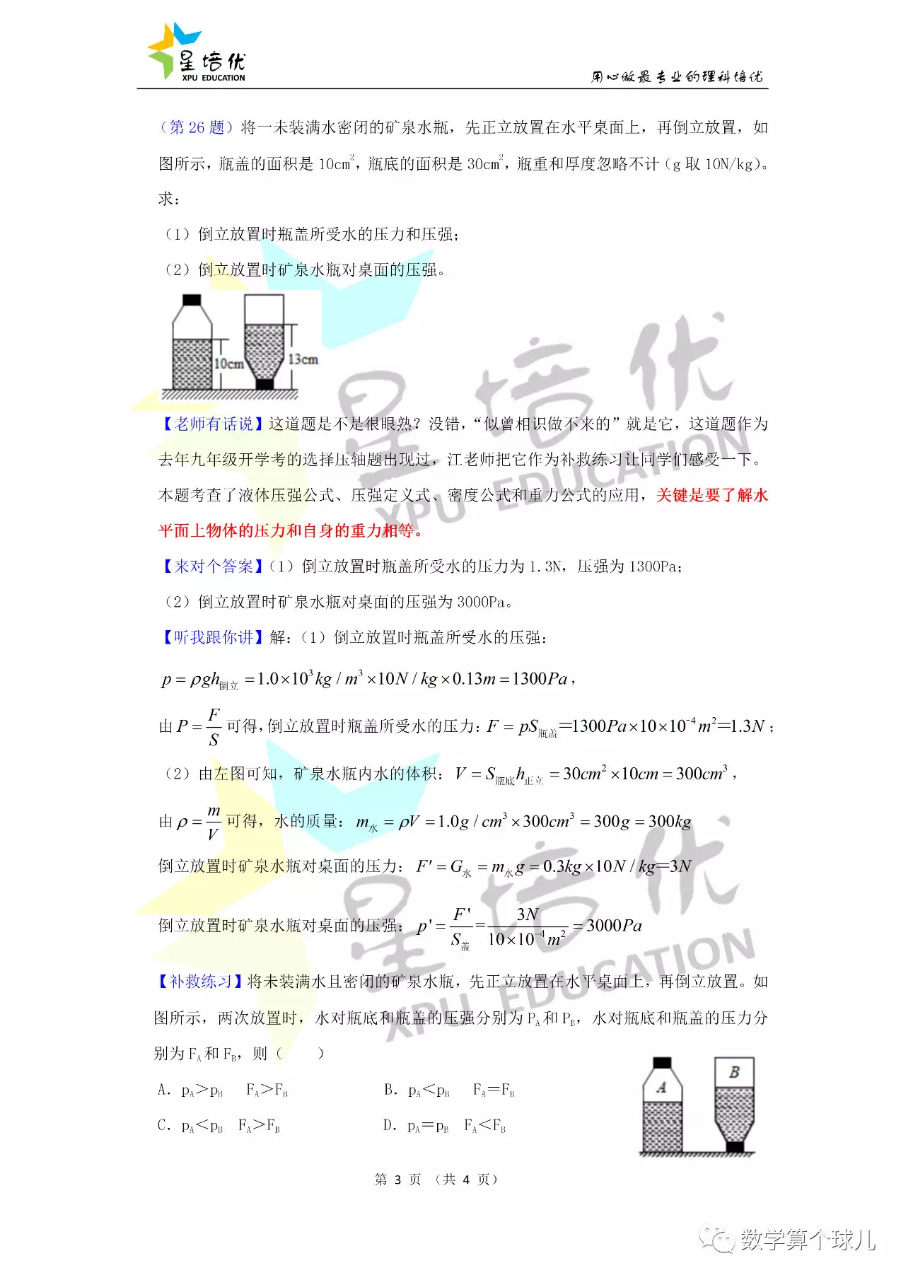 星培优
XPU EDUCATION
用心做最专业的理科培优
（第26题）将一未装满水密闭的矿泉水瓶，先正立放置在水平桌面上，再倒立放置，如
图所示，瓶盖的面积是10cm²，瓶底的面积是30cm²，瓶重和厚度忽略不计（g取10N/kg）。
求：
（1）倒立放置时瓶盖所受水的压力和压强；
（2）倒立放置时矿泉水瓶对桌面的压强。
10cm
13cm
【老师有话说】这道题是不是很眼熟？没错，“似曾相识做不来的”就是它，这道题作为
去年九年级开学考的选择压轴题出现过，江老师把它作为补救练习让同学们感受一下。
本题考查了液体压强公式、压强定义式、密度公式和重力公式的应用，关键是要了解水
平面上物体的压力和自身的重力相等。
【来对个答案】（1）倒立放置时瓶盖所受水的压力为1.3N，压强为1300Pa；
（2）倒立放置时矿泉水瓶对桌面的压强为3000Pa。
【听我跟你讲】解：（1）倒立放置时瓶盖所受水的压强：
p = ρgh倒立 = 1.0×10³kg / m³×10N / kg×0.13m = 1300Pa，
由 P = F/S 可得，倒立放置时瓶盖所受水的压力：F = pS瓶盖=1300Pa×10×10⁻⁴m²=1.3N；
（2）由左图可知，矿泉水瓶内水的体积：V = S瓶底h正立 = 30cm²×10cm = 300cm³，
由 ρ = m/V 可得，水的质量：m水 = ρV = 1.0g / cm³×300cm³ = 300g = 300kg
倒立放置时矿泉水瓶对桌面的压力：F' = G水 = m水g = 0.3kg×10N / kg=3N
倒立放置时矿泉水瓶对桌面的压强：p' = F'/S盖 = 3N/10×10⁻⁴m² = 3000Pa
【补救练习】将未装满水且密闭的矿泉水瓶，先正立放置在水平桌面上，再倒立放置。如
图所示，两次放置时，水对瓶底和瓶盖的压强分别为P_A和P_B，水对瓶底和瓶盖的压力分
别为F_A和F_B，则（　　）
A．p_A＞p_B　F_A＞F_B　　B．p_A＜p_B　F_A＝F_B
C．p_A＜p_B　F_A＞F_B　　D．p_A＝p_B　F_A＜F_B
A
B
第 3 页 （共 4 页）
星培优
XPU EDUCATION
XPU EDUCATION
数学算个球儿